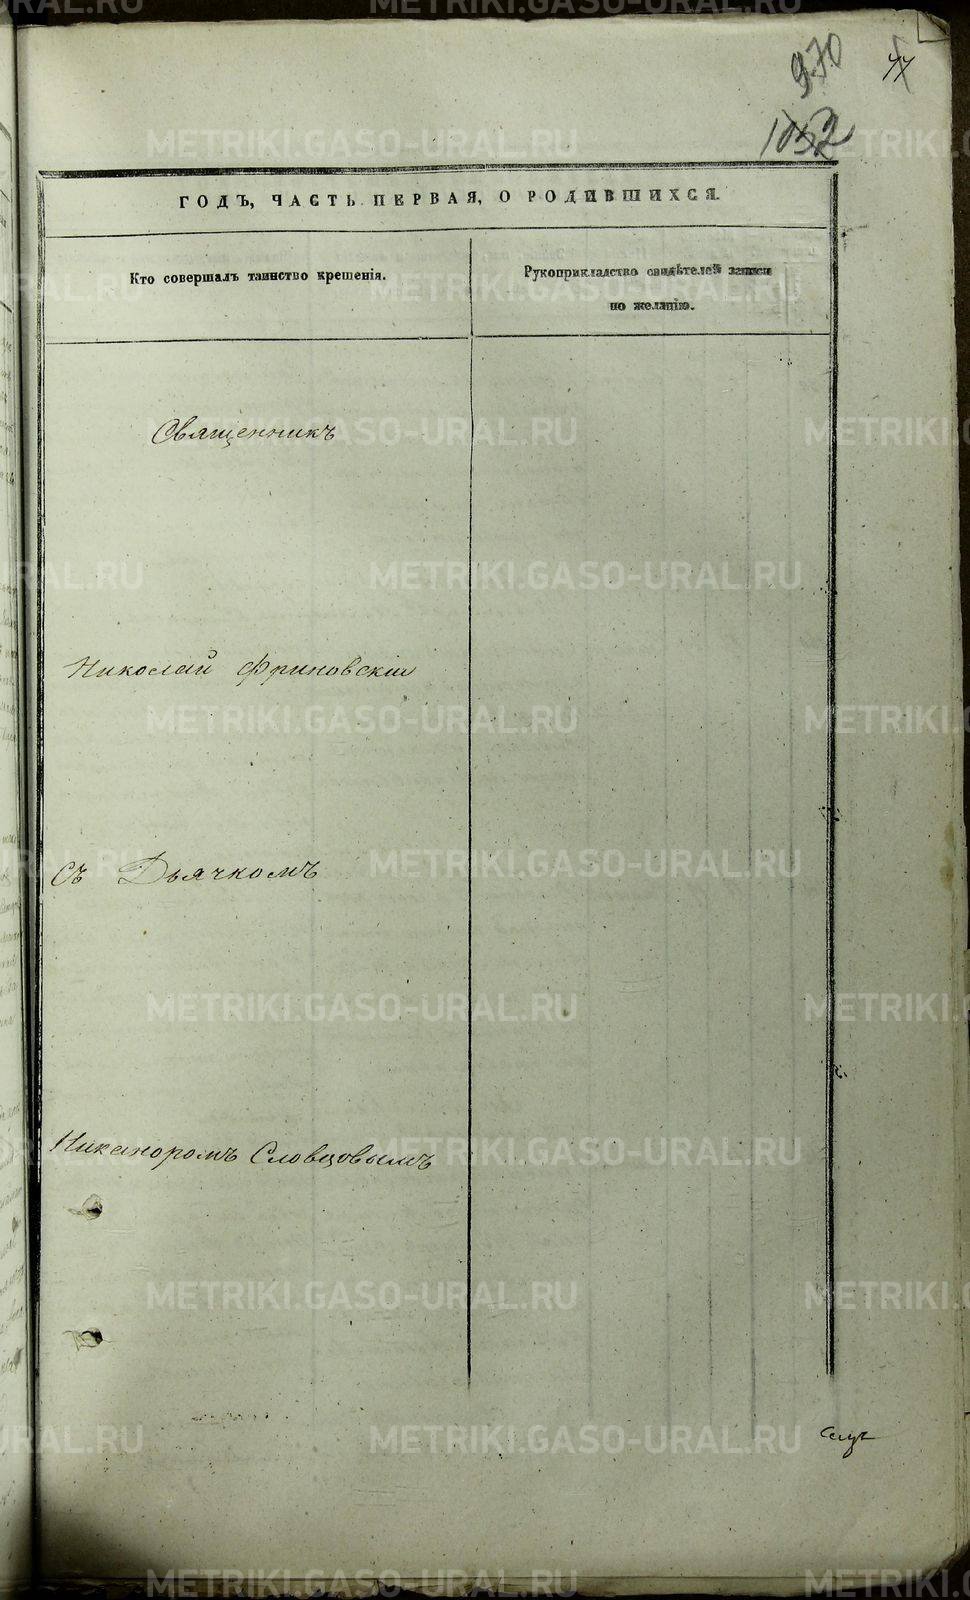 970
1052
ГОДЪ, ЧАСТЬ ПЕРВАЯ, О РОДИВШИХСЯ.
Кто совершалъ таинство крещенія.
Рукоприкладство свидѣтелей записи
по желанію.
Священникъ
Николай Фриновскій
съ Дьячкомъ
Никаноромъ Словцовымъ
METRIKI.GASO-URAL.RU